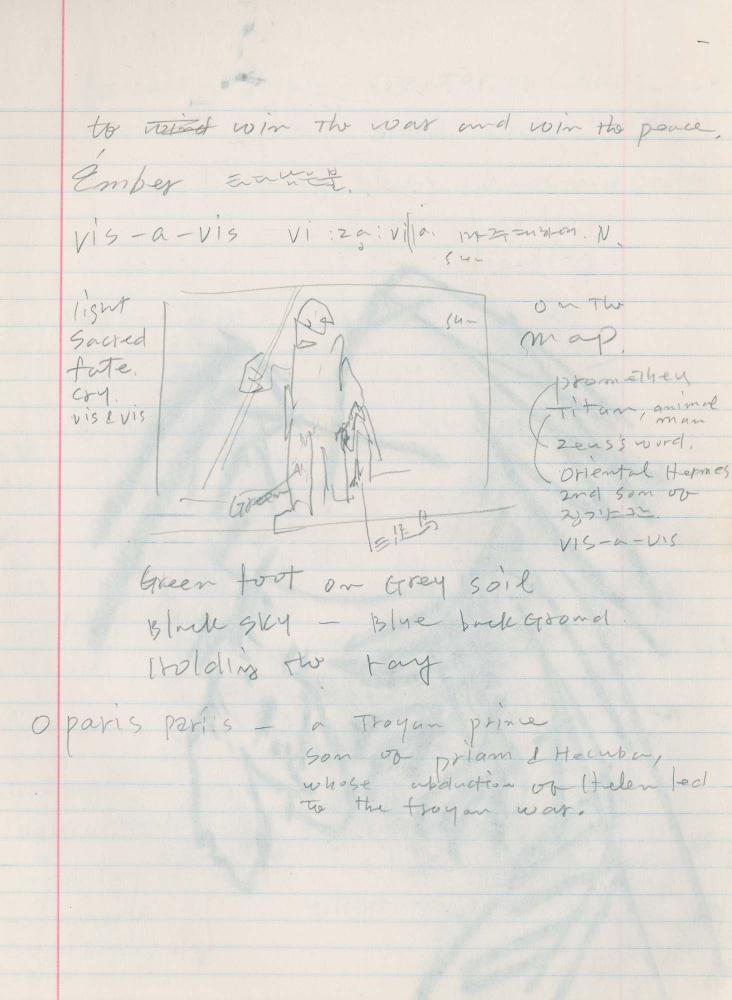 to win the war and win the peace.
Émber 타다남은불.
vis-a-vis vi:za:vi 마주대하여. N.
sun
light
Sacred
fate.
cry.
vis & vis
sun
Green
on the
map.
promethey
Titan, animal
man
Zeus's word.
Oriental Hermes
2nd son of
vis-a-vis
Green foot on Grey soil
Black sky - Blue back Ground.
Holding the ray
O paris pariis - a Troyan prince
son of priam & Hecuba,
whose abduction of Helen led
to the troyan war.